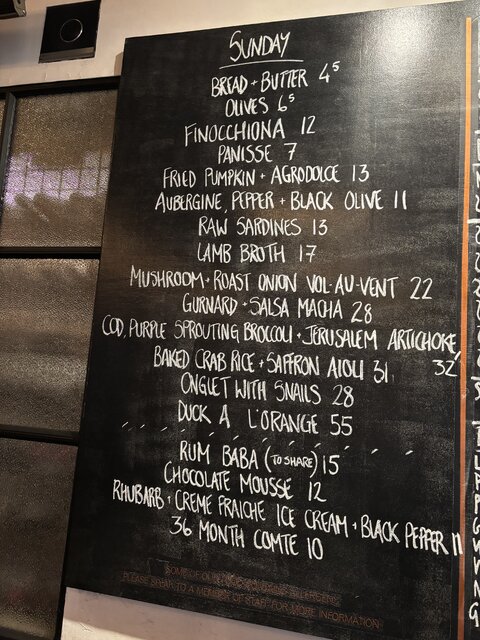 SUNDAY
BREAD + BUTTER 4⁵
OLIVES 6⁵
FINOCCHIONA 12
PANISSE 7
FRIED PUMPKIN + AGRODOLCE 13
AUBERGINE, PEPPER + BLACK OLIVE 11
RAW SARDINES 13
LAMB BROTH 17
MUSHROOM + ROAST ONION VOL-AU-VENT 22
GURNARD + SALSA MACHA 28
COD, PURPLE SPROUTING BROCCOLI + JERUSALEM ARTICHOKE, 32
BAKED CRAB RICE + SAFFRON AIOLI 31
ONGLET WITH SNAILS 28
DUCK A L'ORANGE 55
RUM BABA (TO SHARE) 15
CHOCOLATE MOUSSE 12
RHUBARB + CREME FRAICHE ICE CREAM + BLACK PEPPER 11
36 MONTH COMTE 10
SOME OF OUR ALLERGENS
PLEASE SPEAK TO A MEMBER OF STAFF FOR MORE INFORMATION